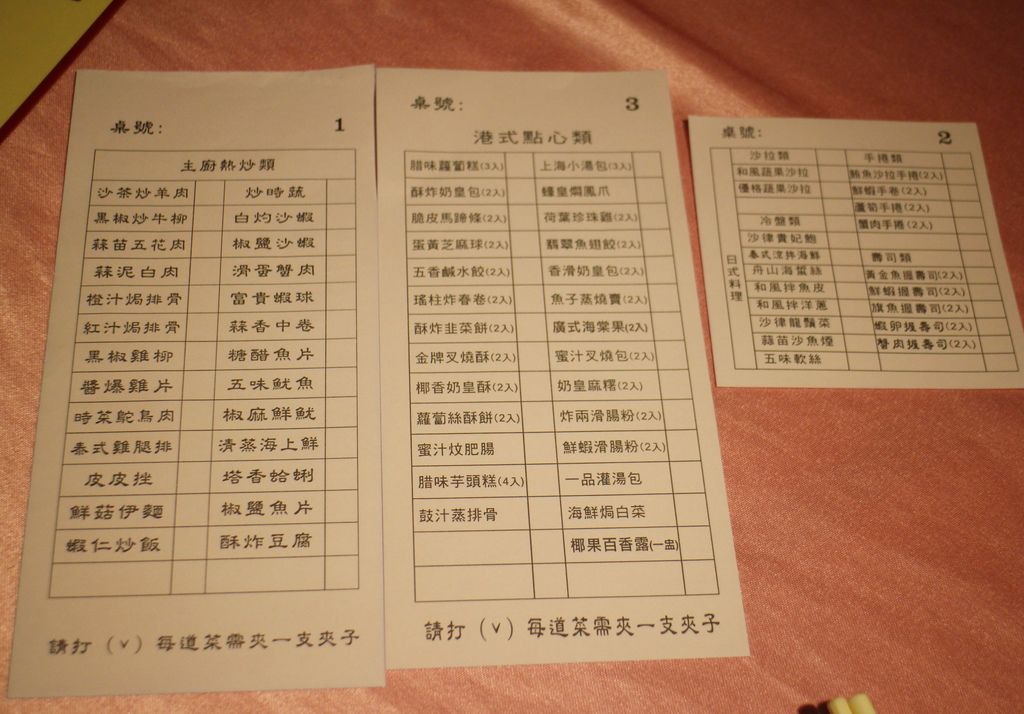 桌號： 1
主廚熱炒類
沙茶炒羊肉 炒時蔬
黑椒炒牛柳 白灼沙蝦
蒜苗五花肉 椒鹽沙蝦
蒜泥白肉 滑蛋蟹肉
橙汁焗排骨 富貴蝦球
紅汁焗排骨 蒜香中卷
黑椒雞柳 糖醋魚片
醬爆雞片 五味魷魚
時菜鴕鳥肉 椒麻鮮魷
泰式雞腿排 清蒸海上鮮
皮皮挫 塔香蛤蜊
鮮菇伊麵 椒鹽魚片
蝦仁炒飯 酥炸豆腐
請打（v）每道菜需夾一支夾子
桌號： 3
港式點心類
腊味蘿蔔糕(3入) 上海小湯包(3入)
酥炸奶皇包(2入) 蠔皇燜鳳爪
脆皮馬蹄條(2入) 荷葉珍珠雞(2入)
蛋黃芝麻球(2入) 翡翠魚翅餃(2入)
五香鹹水餃(2入) 香滑奶皇包(2入)
瑤柱炸春卷(2入) 魚子蒸燒賣(2入)
酥炸韭菜餅(2入) 廣式海棠果(2入)
金牌叉燒酥(2入) 蜜汁叉燒包(2入)
椰香奶皇酥(2入) 奶皇麻糬(2入)
蘿蔔絲酥餅(2入) 炸兩滑腸粉(2入)
蜜汁炆肥腸 鮮蝦滑腸粉(2入)
腊味芋頭糕(4入) 一品灌湯包
鼓汁蒸排骨 海鮮焗白菜
椰果百香露(一盅)
請打（v）每道菜需夾一支夾子
桌號： 2
日式料理
沙拉類 手捲類
和風蔬果沙拉 鮪魚沙拉手捲(2入)
優格蔬果沙拉 鮮蝦手卷(2入)
蘆筍手捲(2入)
冷盤類 蟹肉手捲(2入)
沙律貴妃鮑
泰式涼拌海鮮 壽司類
舟山海蜇絲 黃金魚握壽司(2入)
和風拌魚皮 鮮蝦握壽司(2入)
和風拌洋蔥 旗魚握壽司(2入)
沙律龍鬚菜 蝦卵握壽司(2入)
蒜苗沙魚煙 蟹肉握壽司(2入)
五味軟絲